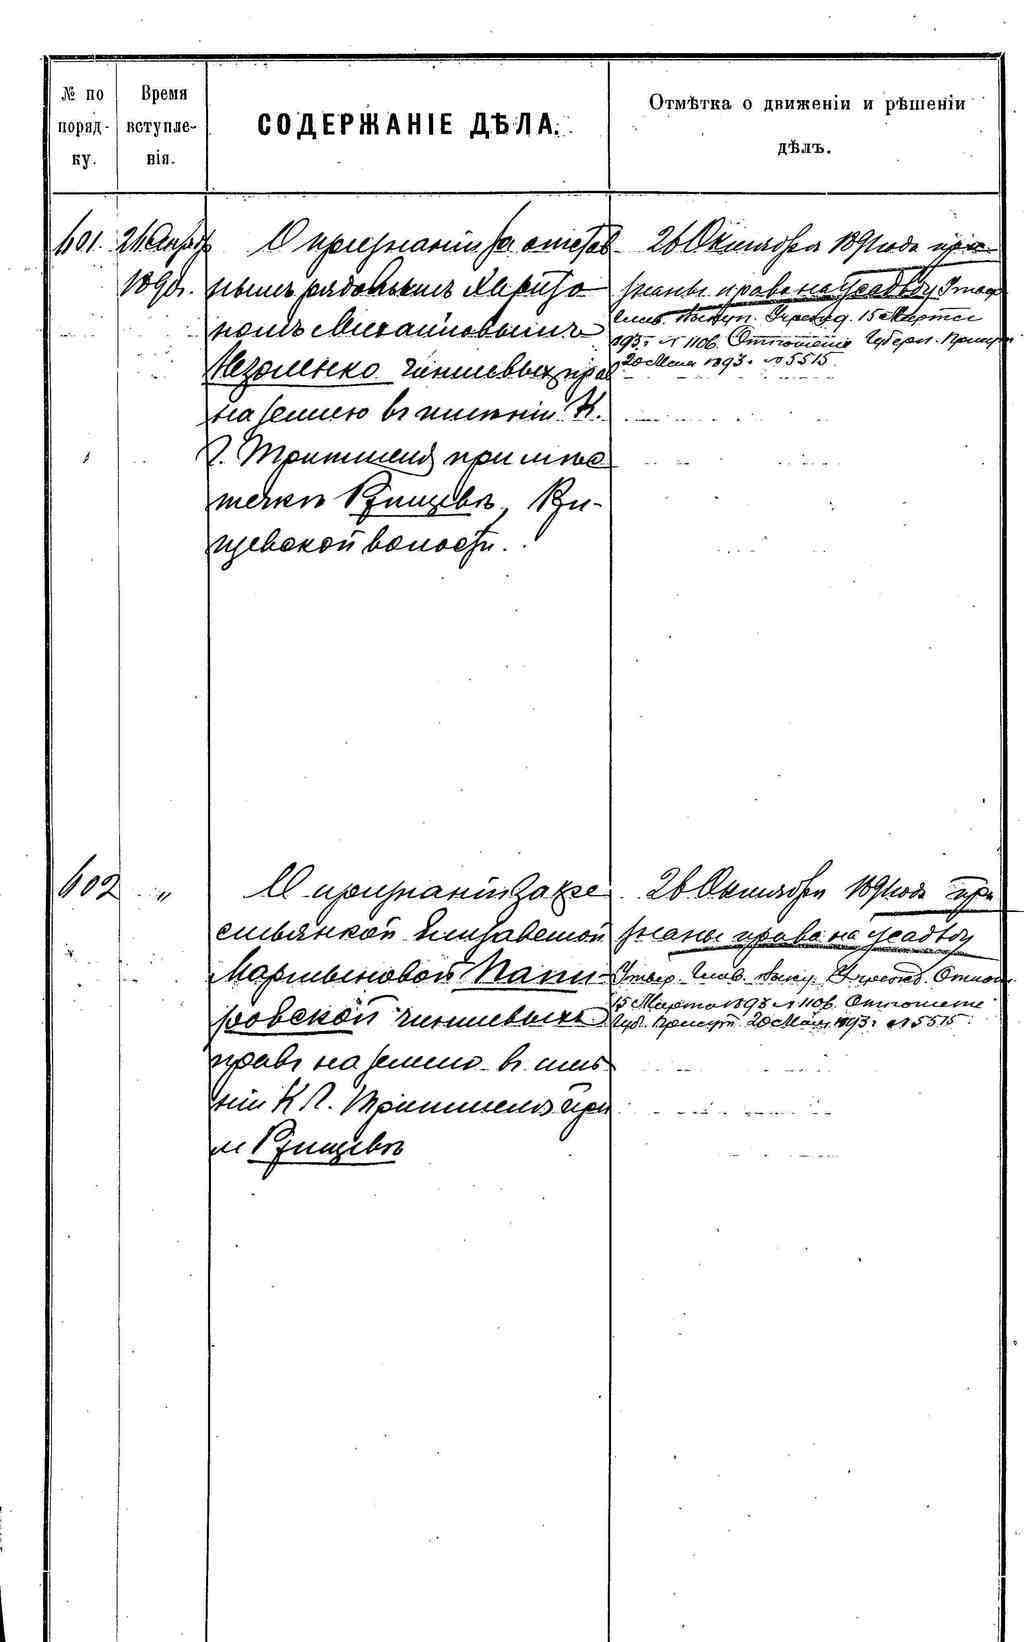 № по порядку.
Время вступленія.
СОДЕРЖАНІЕ ДѢЛА.
Отмѣтка о движеніи и рѣшеніи дѣлъ.
601. 21 Апрѣля 1890г.
О признаніи за отстав-
нымъ рядовымъ Харито-
номъ Михайловымъ
Незоленко чиншевыхъ прав
на землю въ имѣніи К.
Г. Тритшеля при мѣс-
течкѣ Ржищевѣ, Ржи-
щевской волости.
26 Октября 1891 года при-
знаны права на усадьбу Утвер
Глав. Выкуп. Учрежд. 15 Марта
1893 г. № 1106. Отношеніе Губерн. Присут
20 Мая 1893 г. № 5515.
602 "
О признаніи за кре-
стьянкой Елизаветой
Мартыновой Папи-
ровской чиншевыхъ
правъ на землю въ имѣ-
ніи К Г. Тритшеля при
м Ржищевѣ
26 Октября 1891 года при
знаны права на усадьбу
Утвер. Глав. Выку. Учрежд.
15 Марта 1893 № 1106. Отношеніе
Губ. Присут. 20 Мая 1893 г. № 5515.